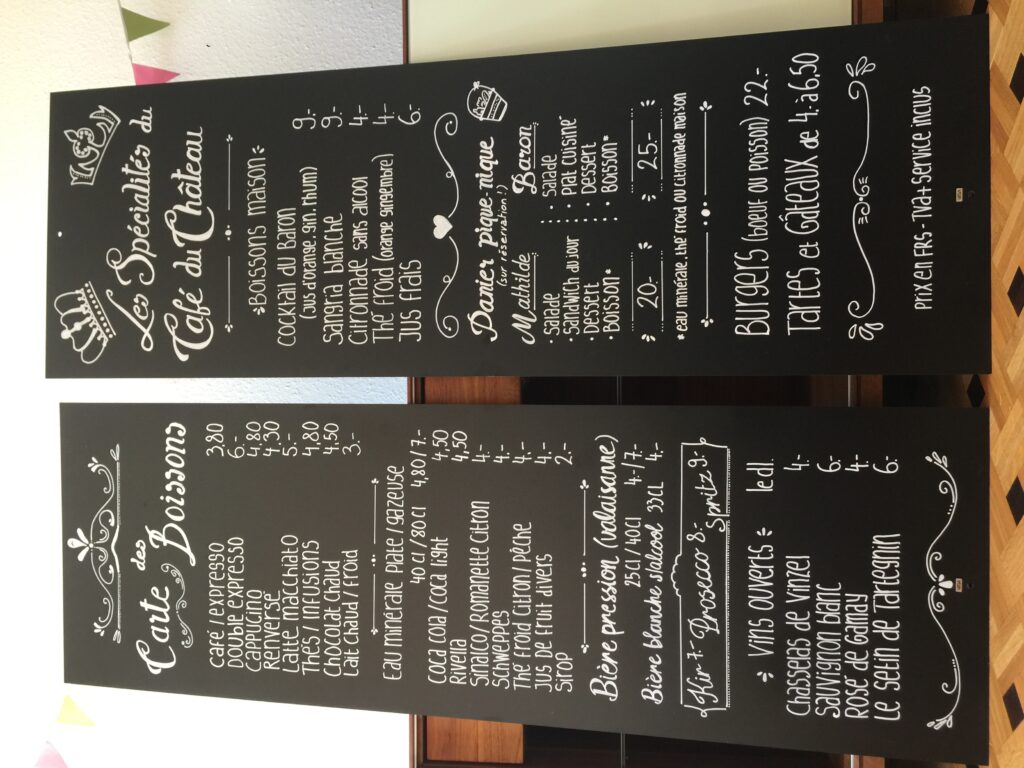 Carte des
Boissons
café / expresso 3.80
double expresso 6.-
cappuccino 4.80
Renversé 4.30
Latte macchiato 5.-
Thés / infusions 4.80
chocolat chaud 4.50
Lait chaud / froid 3.-
Eau minérale plate / gazeuse
40 cl / 80 cl 4.80 / 7.-
coca cola / coca light 4.50
Rivella 4,50
Sinalco / Romanette citron 4.-
Schweppes 4.-
Thé froid citron / pêche 4.-
Jus de fruit divers 4.-
Sirop 2.-
Bière pression (valaisanne)
25cl / 40cl 4.- /7.-
Bière blanche s/alcool 33cl 4.-
Kir + Prosecco 8.-
Spritz 9.-
Vins ouverts le dl.
Chasselas de Vinzel 4.-
Sauvignon blanc 6.-
Rosé de Gamay 4.-
Le Satin de Tartegnin 6.-
Les Spécialités du
Café du Château
*Boissons maison*
Cocktail du Baron 9.-
(jus d'orange, gin, rhum)
Sangria blanche 9.-
Citronnade sans alcool 4.-
Thé froid (orange gingembre) 4.-
Jus frais 6.-
Panier pique-nique
(sur réservation !)
Mathilde Baron
• Salade • Salade
• Sandwich du jour • Plat cuisiné
• Dessert • Dessert
• Boisson* • Boisson*
20.- 25.-
*eau minérale, thé froid ou citronnade maison
Burgers (boeuf ou poisson) 22.-
Tartes et Gâteaux de 4.- à 6,50
Prix en FRS - TVA + service inclus